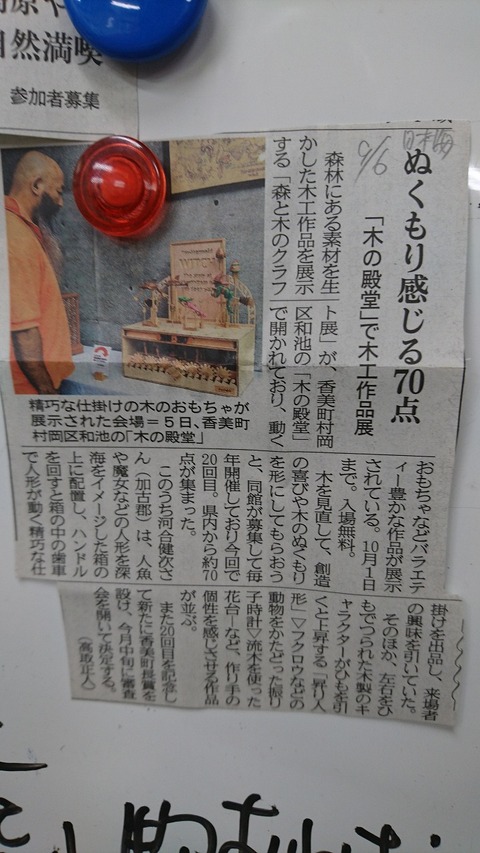 参加者募集
然満喫
9/6
日本海
ぬくもり感じる70点
「木の殿堂」で木工作品展
森林にある素材を生
かした木工作品を展示
する「森と木のクラフ
ト展」が、香美町村岡
区和池の「木の殿堂」
で開かれており、動く
おもちゃなどバラエテ
ィー豊かな作品が展示
されている。10月1日
まで。入場無料。
木を見直して、創造
の喜びや木のぬくもり
を形にしてもらおう
と、同館が募集して毎
年開催しており今回で
20回目。県内から約70
点が集まった。
このうち河合健次さ
ん（加古郡）は、人魚
や魔女などの人形を深
海をイメージした箱の
上に配置し、ハンドル
を回すと箱の中の歯車
で人形が動く精巧な仕
掛けを出品し、来場者
の興味を引いていた。
そのほか、左右をひ
もでつられた木製のキ
ャラクターがひもを引
くと上昇する「昇り人
形」▽フクロウなどの
動物をかたどった振り
子時計▽流木を使った
花台―など、作り手の
個性を感じさせる作品
が並ぶ。
また20回目を記念し
て新たに香美町長賞を
設け、今月中旬に審査
会を開いて決定する。
（高取正人）
WITCH
精巧な仕掛けの木のおもちゃが
展示された会場＝5日、香美町
村岡区和池の「木の殿堂」